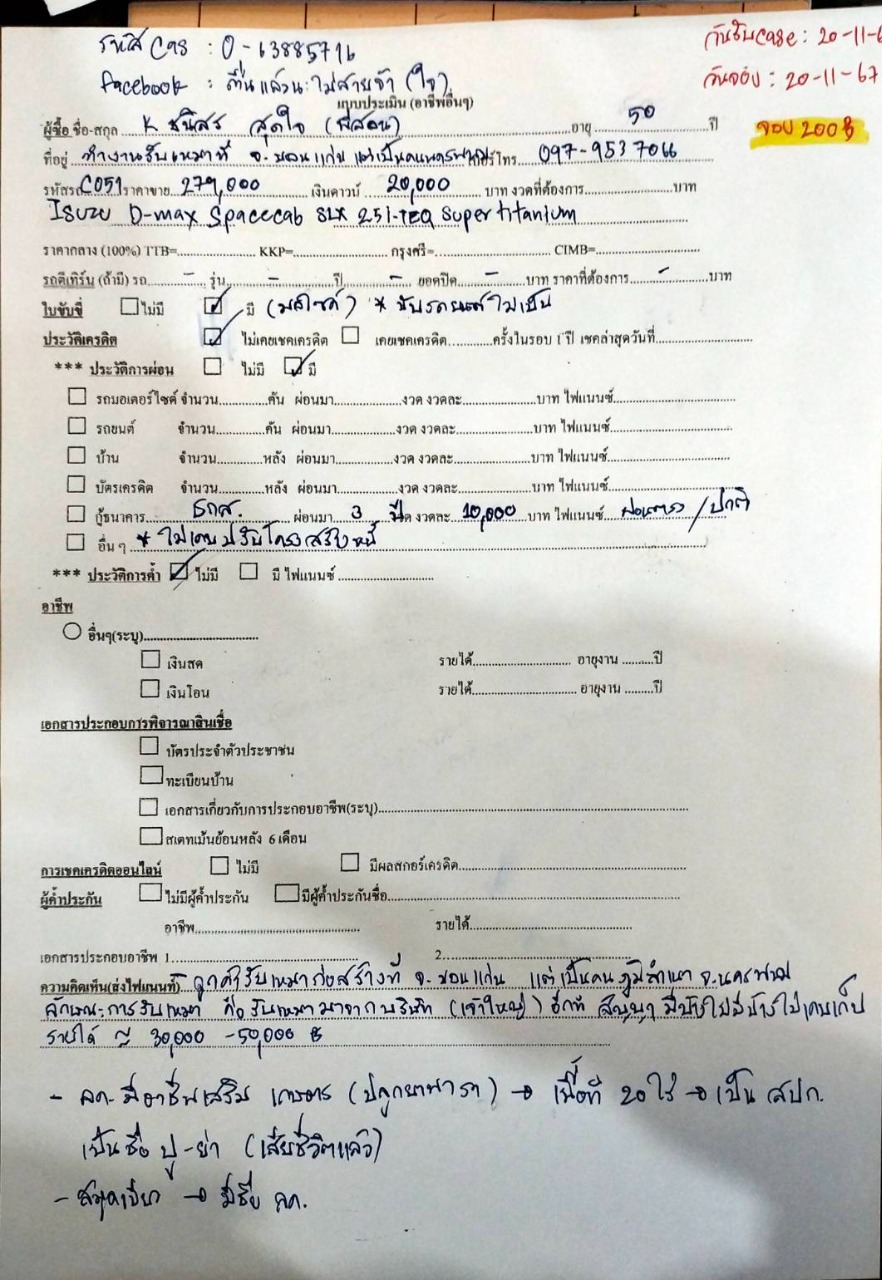 รหัส Cas : 0-63885716
วันรับcase : 20-11-6
facebook : ตื่นแล้วนะไม่สายจ้า (ใจ)
วันจอง : 20-11-67
แบบประเมิน (อาชีพอื่นๆ)
ผู้ซื้อ ชื่อ-สกุล K สุดใจ อายุ 50 ปี
จอง 200฿
ที่อยู่ ทำงานรับเหมาที่ จ.ขอนแก่น แต่เป็นคนนครพนม เบอร์โทร. 097-9537066
รหัสรถ C051 ราคาขาย 279,000 เงินดาวน์ 20,000 บาท งวดที่ต้องการ บาท
Isuzu D-max Spacecab SLX 25i-TEQ Super titanium
ราคากลาง (100%) TTB= KKP= กรุงศรี= CIMB=
รถตีเทิร์น (ถ้ามี) รถ - รุ่น - ปี - ยอดปิด - บาท ราคาที่ต้องการ - บาท
ใบขับขี่ ไม่มี มี (มอไซค์) * ขับรถยนต์ไม่เป็น
ประวัติเครดิต ไม่เคยเชคเครดิต เคยเชคเครดิต ครั้งในรอบ 1 ปี เชคล่าสุดวันที่
*** ประวัติการผ่อน ไม่มี มี
รถมอเตอร์ไซค์ จำนวน คัน ผ่อนมา งวด งวดละ บาท ไฟแนนซ์
รถยนต์ จำนวน คัน ผ่อนมา งวด งวดละ บาท ไฟแนนซ์
บ้าน จำนวน หลัง ผ่อนมา งวด งวดละ บาท ไฟแนนซ์
บัตรเครดิต จำนวน หลัง ผ่อนมา งวด งวดละ บาท ไฟแนนซ์
กู้ธนาคาร ธกส. ผ่อนมา 3 ปี งวดละ 10,000 บาท ไฟแนนซ์ ผ่อนตรง / ปกติ
อื่น ๆ * ไม่เคยปรับโครงสร้างหนี้
*** ประวัติการค้ำ ไม่มี มี ไฟแนนซ์
อาชีพ
อื่นๆ(ระบุ)
เงินสด รายได้ อายุงาน ปี
เงินโอน รายได้ อายุงาน ปี
เอกสารประกอบการพิจารณาสินเชื่อ
บัตรประจำตัวประชาชน
ทะเบียนบ้าน
เอกสารเกี่ยวกับการประกอบอาชีพ(ระบุ)
สเตทเม้นย้อนหลัง 6 เดือน
การเชคเครดิตออนไลน์ ไม่มี มีผลสกอร์เครดิต
ผู้ค้ำประกัน ไม่มีผู้ค้ำประกัน มีผู้ค้ำประกันชื่อ
อาชีพ รายได้
เอกสารประกอบอาชีพ 1 2
ความคิดเห็น(ส่งไฟแนนท์) ลูกค้ารับเหมาก่อสร้างที่ จ.ขอนแก่น แต่เป็นคนภูมิลำเนา จ.นครพนม
ลักษณะการรับเหมา คือรับเหมามาจากบริษัท (เจ้าใหญ่) อีกที สัญญา มีบ้างไม่มีบ้างไม่เคยเก็บ
รายได้ 30,000 - 50,000 ฿
- ลค. มีอาชีพเสริม เกษตร (ปลูกยางพารา) → เนื้อที่ 20 ไร่ → เป็น สปก.
เป็นชื่อ ปู่-ย่า (เสียชีวิตแล้ว)
- สมุดเขียว → มีชื่อ ลค.